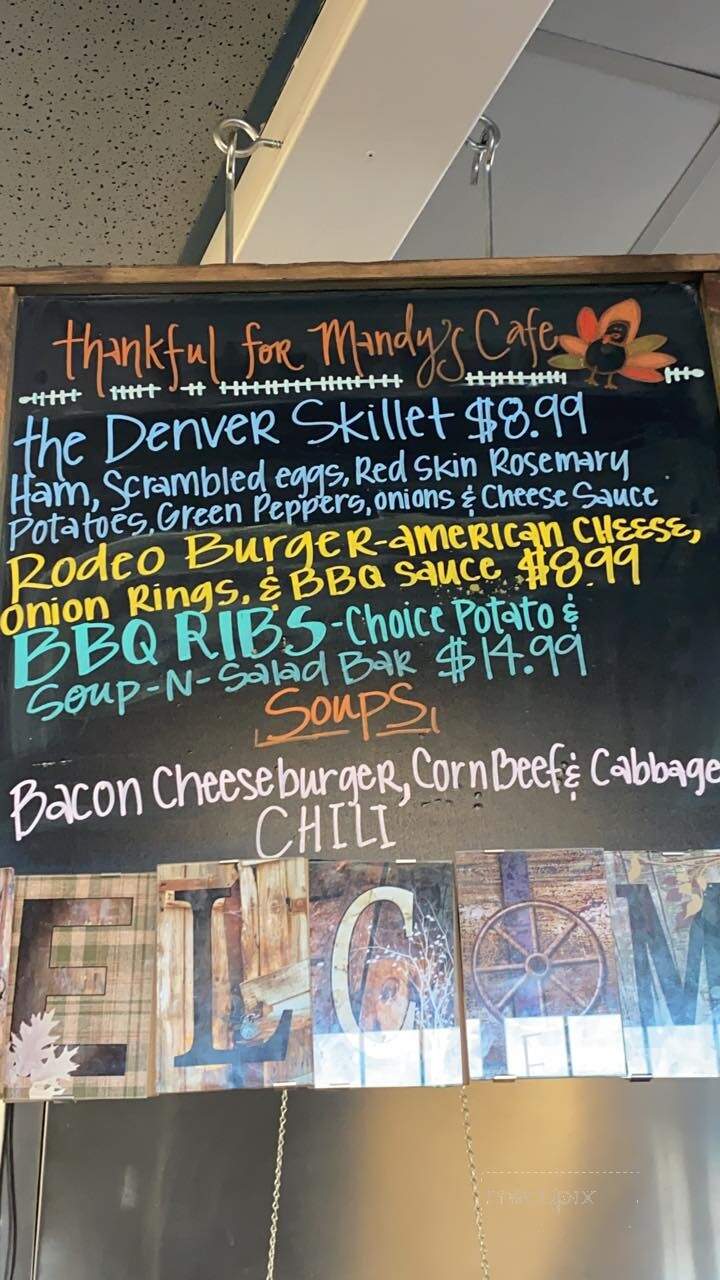 thankful for Mandy's Cafe
the Denver Skillet $8.99
Ham, Scrambled eggs, Red Skin Rosemary
Potatoes, Green Peppers, onions & Cheese Sauce
Rodeo Burger-american CHEESE,
Onion Rings, & BBQ Sauce $8.99
BBQ RIBS-Choice Potato &
Soup-N-Salad Bar $14.99
Soups
Bacon Cheeseburger, Corn Beef & Cabbage
CHILI
ELCOM